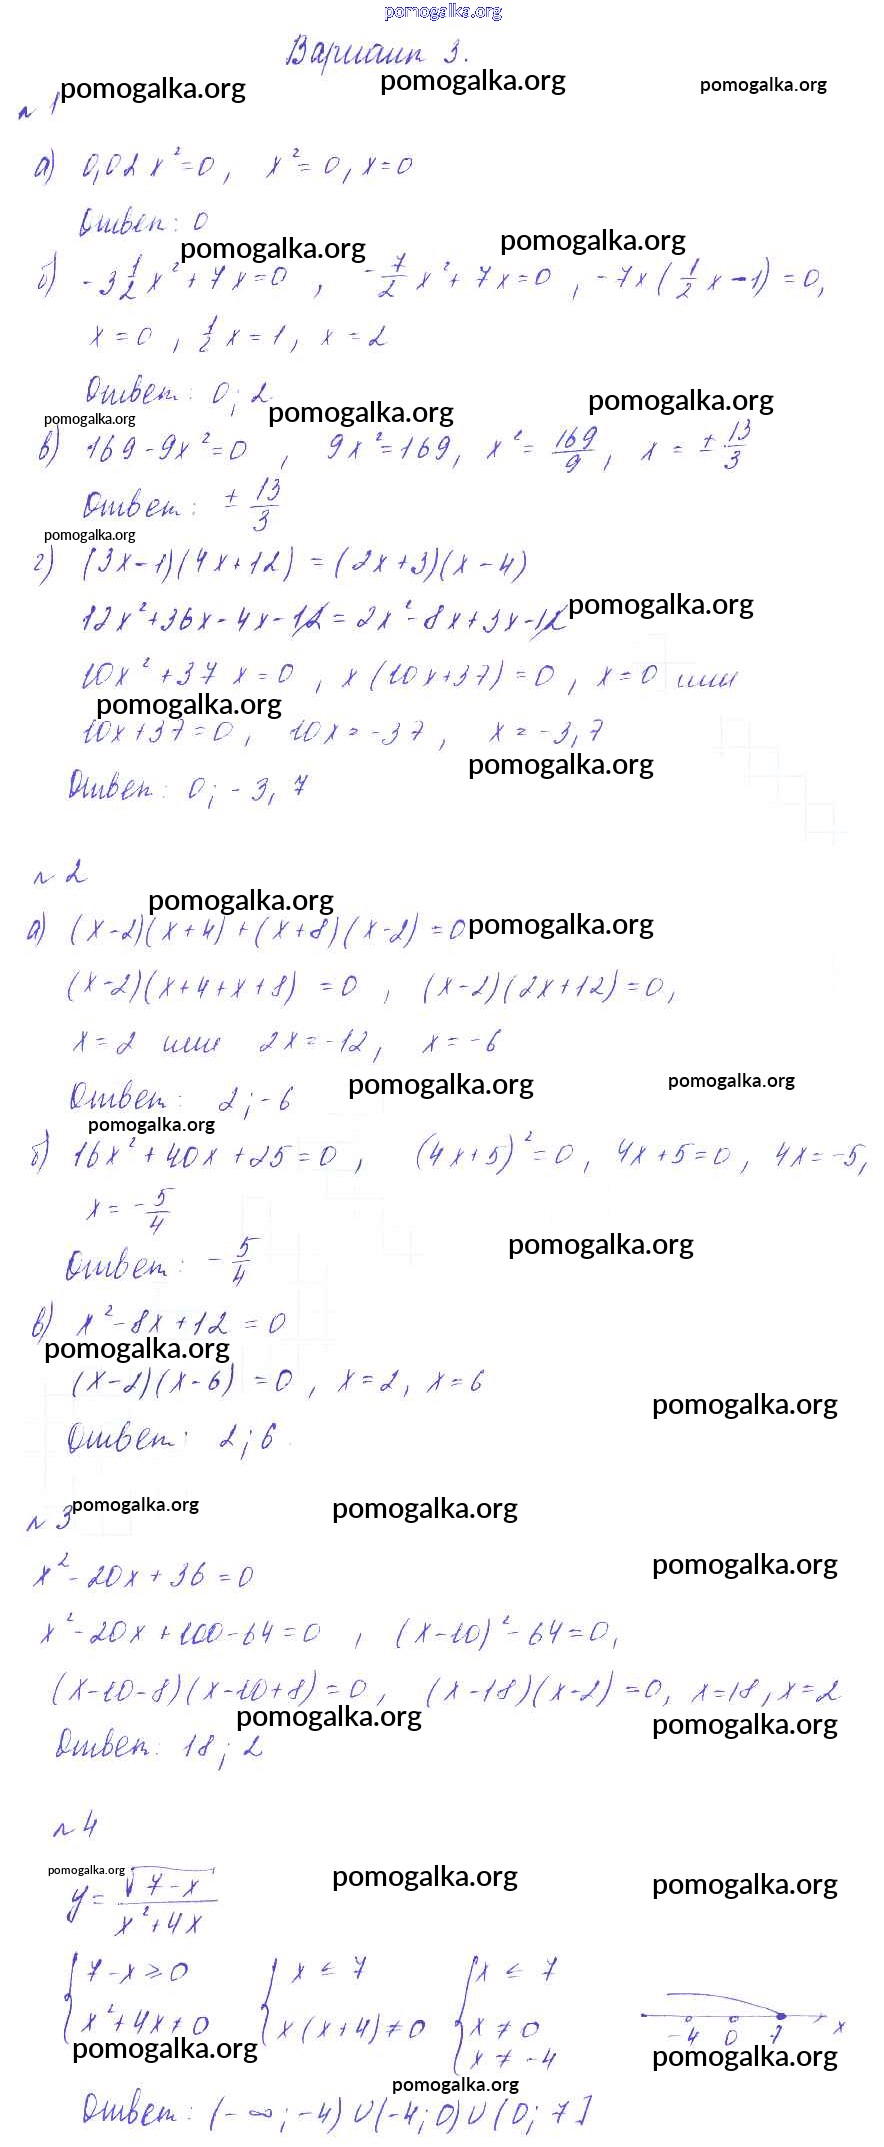 pomogalka.org
Вариант 3.
pomogalka.org pomogalka.org pomogalka.org
№ 1
а) 0,02x²=0, x²=0, x=0
Ответ: 0
pomogalka.org pomogalka.org
б) -3 1/2 x² + 7x=0, -7/2 x² + 7x=0, -7x(1/2 x - 1) = 0,
x=0, 1/2 x = 1, x = 2
Ответ: 0; 2
pomogalka.org pomogalka.org pomogalka.org
в) 169-9x²=0, 9x²=169, x² = 169/9, x = ± 13/3
Ответ: ± 13/3
pomogalka.org
г) (3x-1)(4x+12) = (2x+3)(x-4)
12x²+36x-4x-12=2x²-8x+3x-12
pomogalka.org
10x²+37x=0, x(10x+37)=0, x=0 или
pomogalka.org
10x+37=0, 10x=-37, x=-3,7
pomogalka.org
Ответ: 0; -3,7
№ 2
pomogalka.org
а) (x-2)(x+4)+(x+8)(x-2)=0 pomogalka.org
(x-2)(x+4+x+8)=0, (x-2)(2x+12)=0,
x=2 или 2x=-12, x=-6
pomogalka.org pomogalka.org
Ответ: 2; -6
pomogalka.org
б) 16x²+40x+25=0, (4x+5)²=0, 4x+5=0, 4x=-5,
x = -5/4
pomogalka.org
Ответ: -5/4
в) x²-8x+12=0
pomogalka.org
(x-2)(x-6)=0, x=2, x=6
pomogalka.org
Ответ: 2; 6
pomogalka.org pomogalka.org
№ 3
pomogalka.org
x²-20x+36=0
x²-20x+100-64=0, (x-10)²-64=0,
(x-10-8)(x-10+8)=0, (x-18)(x-2)=0, x=18, x=2
pomogalka.org pomogalka.org
Ответ: 18; 2
№ 4
pomogalka.org pomogalka.org pomogalka.org
y = √(7-x) / (x²+4x)
{ 7-x ≥ 0 { x ≤ 7 { x ≤ 7
x²+4x≠0 x(x+4)≠0 x≠0
x≠-4
-4 0 7 x
pomogalka.org pomogalka.org
pomogalka.org
Ответ: (-∞; -4)∪(-4; 0)∪(0; 7]